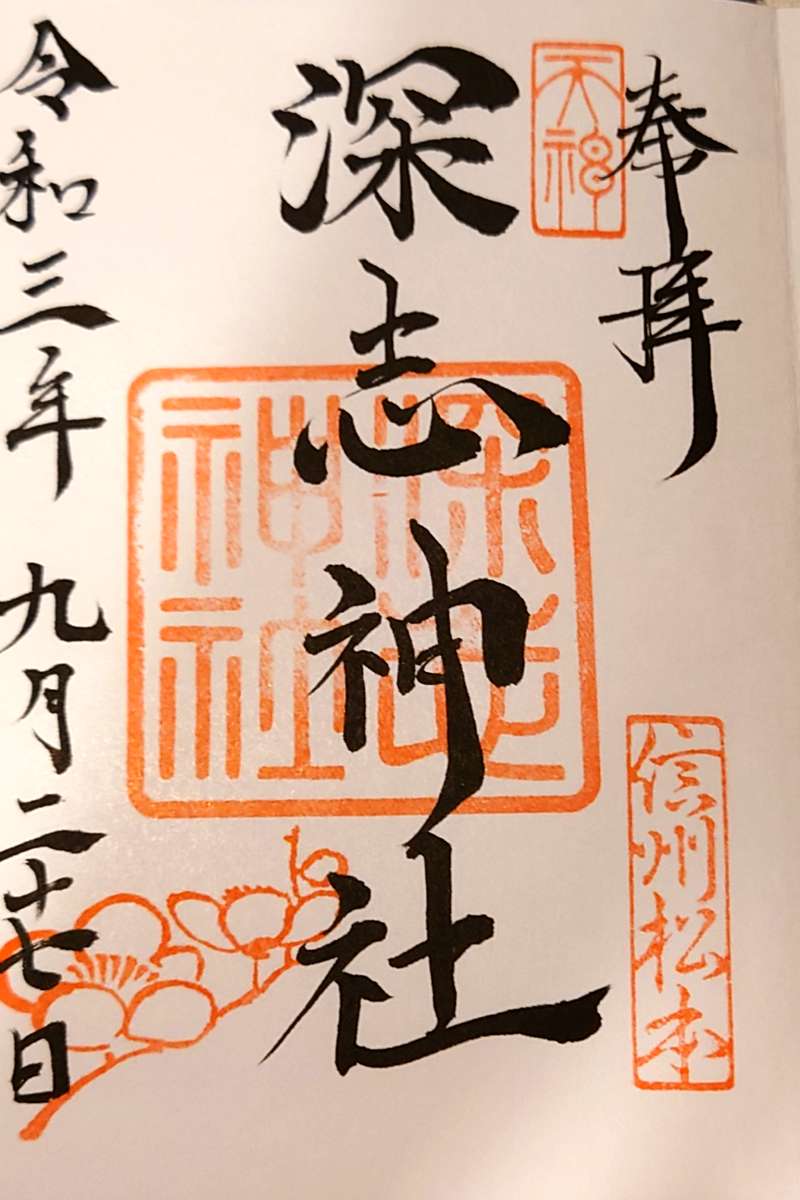 奉拝
天神
信州松本
深志神社
深志神社
令和三年九月二十七日